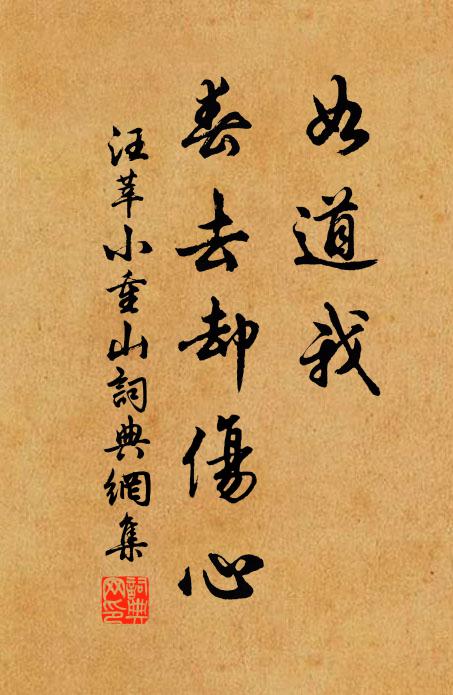 如道我
春去却傷心
汪莘小重山詞典網集
詞典
网印